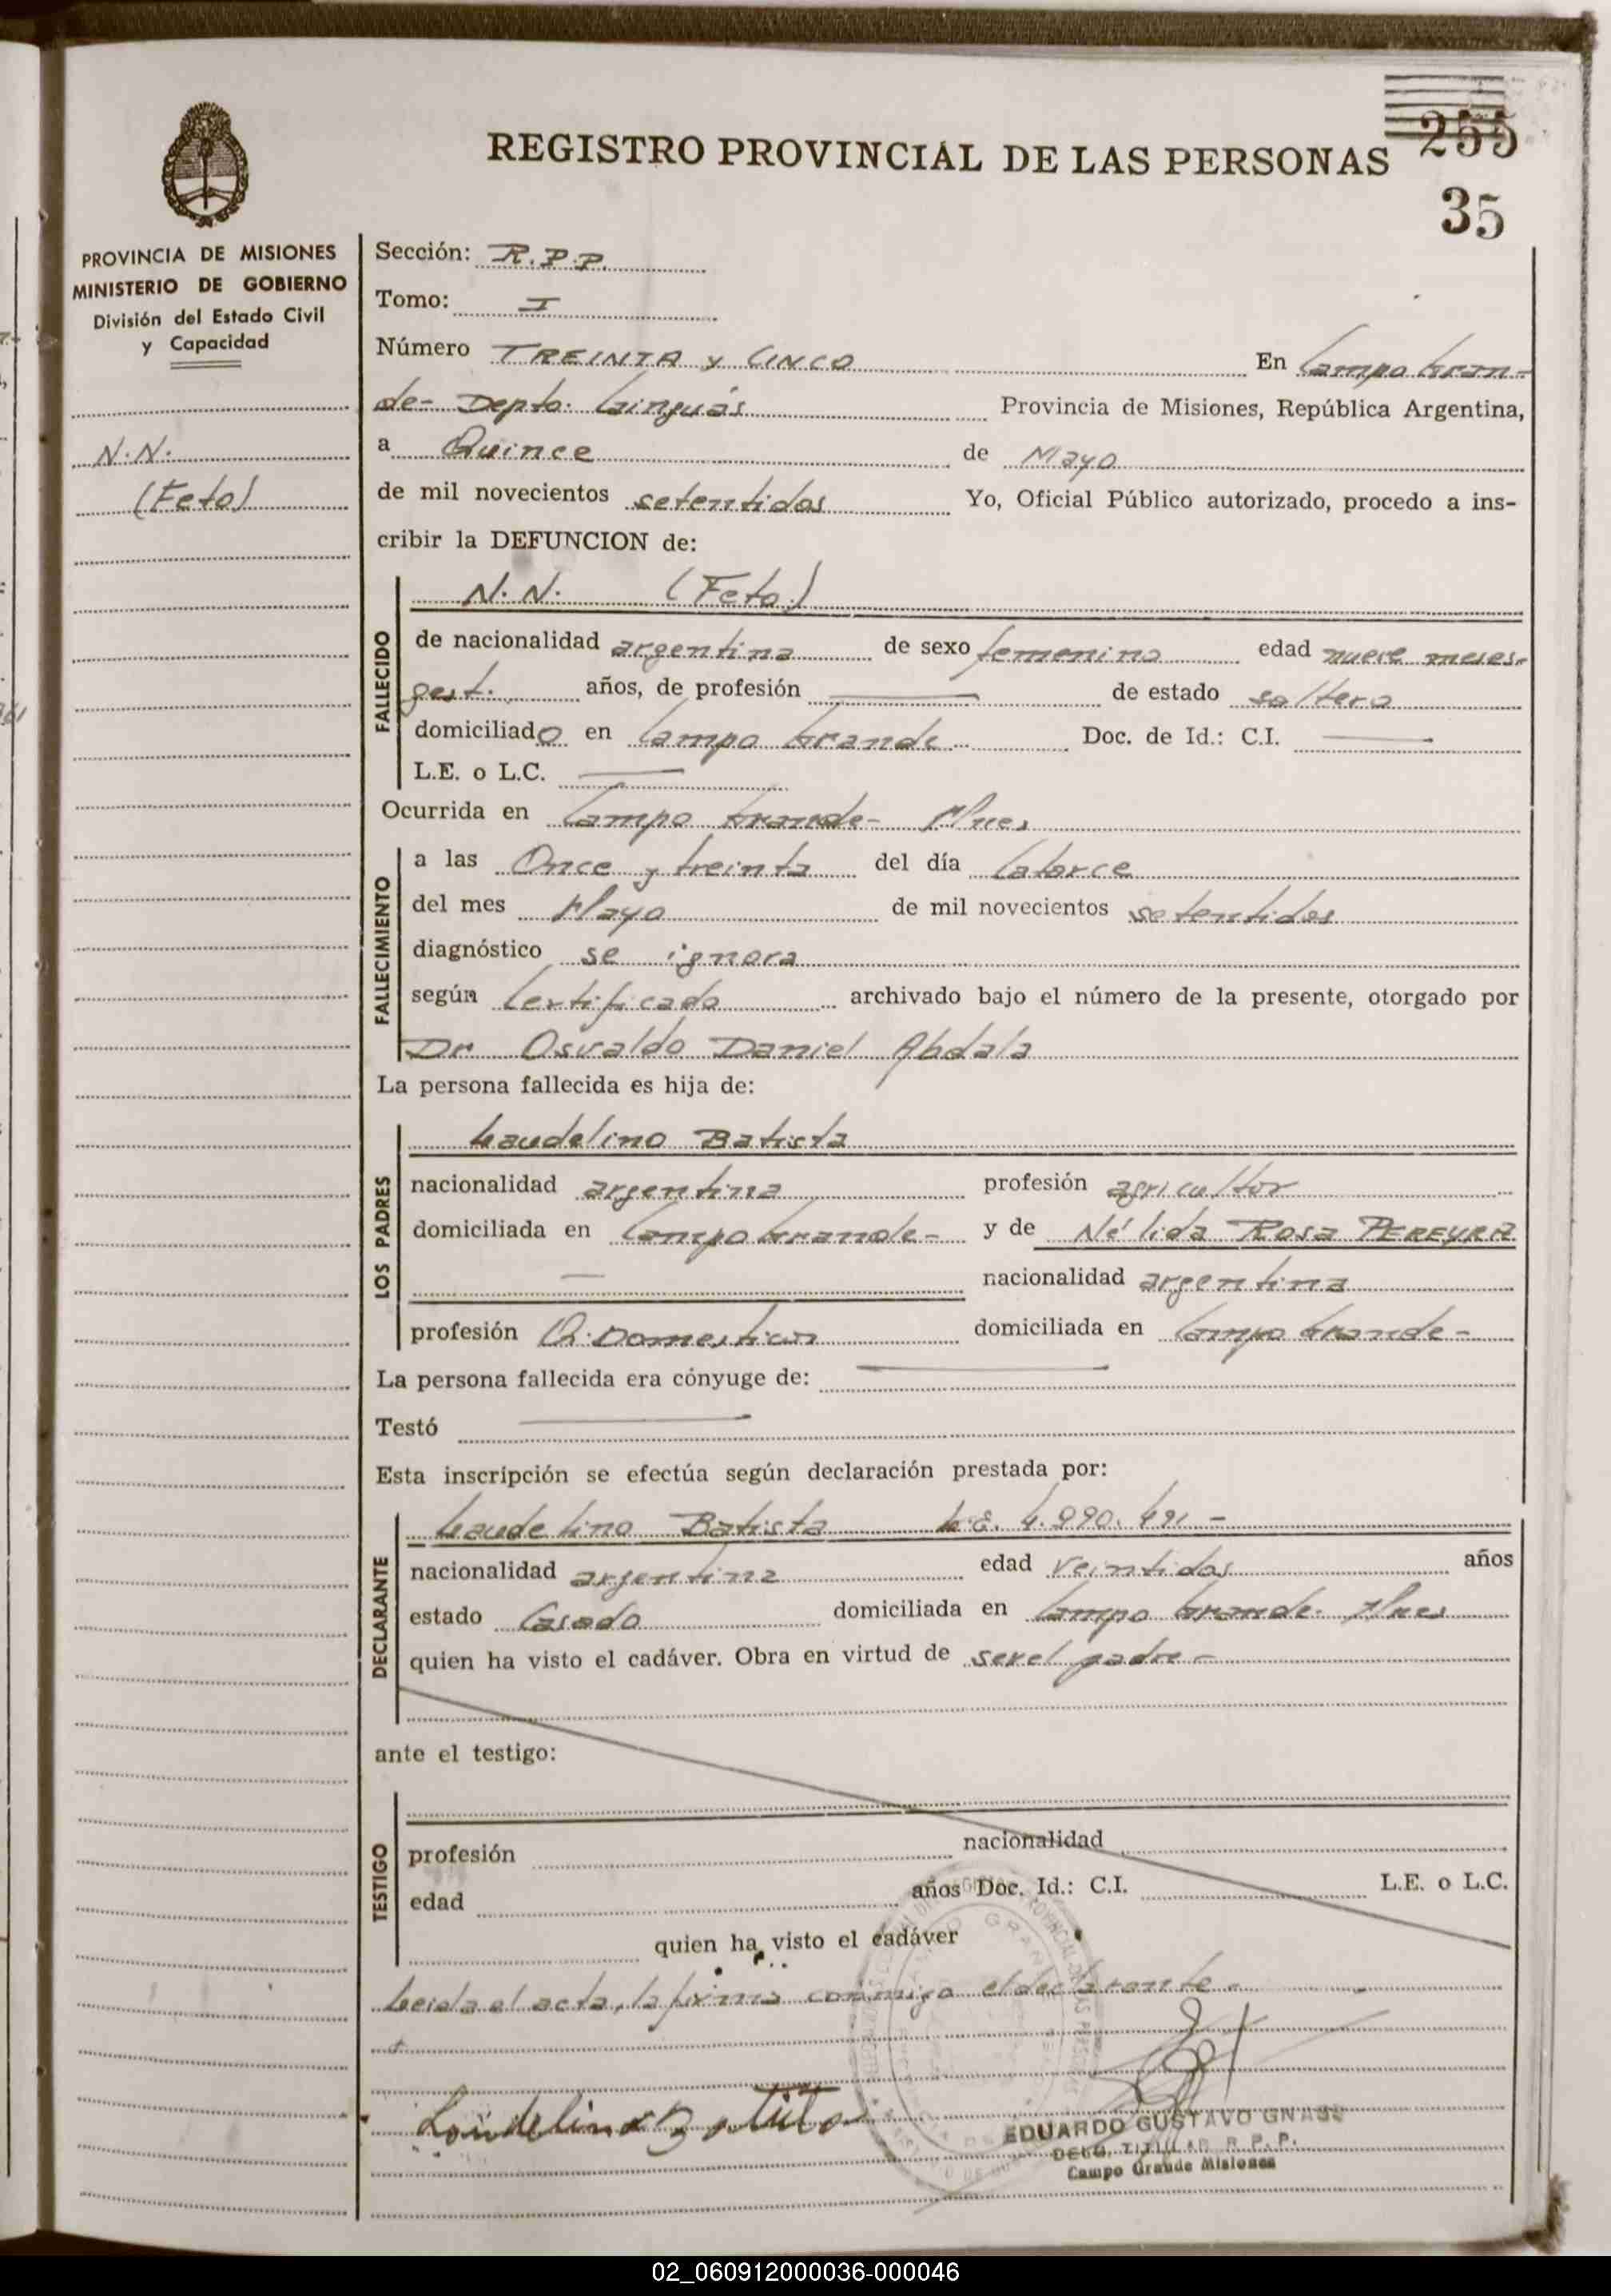 255
REGISTRO PROVINCIAL DE LAS PERSONAS
35
PROVINCIA DE MISIONES
MINISTERIO DE GOBIERNO
División del Estado Civil
y Capacidad
N.N.
(Feto)
Sección: R.P.P.
Tomo: I
Número TREINTA y CINCO En Campo Gran-
de- Depto. Cainguás Provincia de Misiones, República Argentina,
a Quince de Mayo
de mil novecientos setentidos Yo, Oficial Público autorizado, procedo a ins-
cribir la DEFUNCION de:
N.N. (Feto)
FALLECIDO
de nacionalidad argentina de sexo femenino edad nueve meses-
gest. años, de profesión de estado soltera
domiciliado en Campo Grande Doc. de Id.: C.I.
L.E. o L.C.
Ocurrida en Campo Grande- Mnes
FALLECIMIENTO
a las Once y treinta del día Catorce
del mes Mayo de mil novecientos setentidos
diagnóstico se ignora
según Certificado archivado bajo el número de la presente, otorgado por
Dr Osvaldo Daniel Abdala
La persona fallecida es hija de:
LOS PADRES
Laudelino Batista
nacionalidad argentina profesión agricultor
domiciliada en Campo Grande- y de Nélida Rosa PEREYRA
nacionalidad argentina
profesión Q. Domesticos domiciliada en Campo Grande-
La persona fallecida era cónyuge de:
Testó
Esta inscripción se efectúa según declaración prestada por:
DECLARANTE
Laudelino Batista L.E.
nacionalidad argentina edad veintidos años
estado Casado domiciliada en Campo Grande. Mnes
quien ha visto el cadáver. Obra en virtud de ser el padre-
ante el testigo:
TESTIGO
profesión nacionalidad
edad años Doc. Id.: C.I. L.E. o L.C.
quien ha visto el cadáver
Leida el acta, la firma conmigo el declarante-
Laudelino Batista
EDUARDO GUSTAVO
DELG. TITULAR R.P.P.
Campo Grande Misiones
02_060912000036-000046